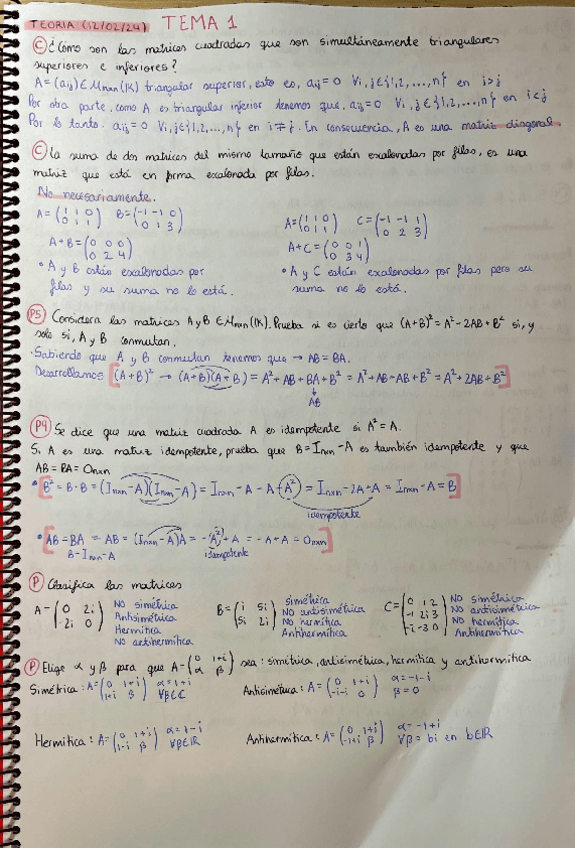 TEORIA (12/02/24) TEMA 1
C ¿Cómo son las matrices cuadradas que son simultáneamente triangulares
superiores e inferiores?
A = (aij) ∈ Mnxn(IK) triangular superior, esto es, aij = 0 ∀i, j ∈ {1, 2, ..., n} en i > j
Por otra parte, como A es triangular inferior tenemos que, aij = 0 ∀i, j ∈ {1, 2, ..., n} en i < j
Por lo tanto. aij = 0 ∀i, j ∈ {1, 2, ..., n} en i ≠ j. En consecuencia, A es una matriz diagonal.
C La suma de dos matrices del mismo tamaño que están escalonadas por filas, es una
matriz que está en forma escalonada por filas.
No necesariamente.
A = (1 1 0 / 0 1 1) B = (-1 -1 0 / 0 1 3)
A+B = (0 0 0 / 0 2 4)
• A y B están escalonadas por
filas y su suma no lo está.
A = (1 1 0 / 0 1 1) C = (-1 -1 1 / 0 2 3)
A+C = (0 0 1 / 0 3 4)
• A y C están escalonadas por filas pero su
suma no lo está.
P5 Considera las matrices A y B ∈ Mnxn(IK). Prueba si es cierto que (A+B)² = A² - 2AB + B² si, y
solo si, A y B conmutan.
· Sabiendo que A y B conmutan tenemos que → AB = BA.
Desarrollamos [(A+B)² → (A+B)(A+B) = A² + AB + BA + B² = A² + AB + AB + B² = A² + 2AB + B²]
↓
AB
P4 Se dice que una matriz cuadrada A es idempotente si A² = A.
Si A es una matriz idempotente, prueba que B = Inxn - A es también idempotente y que
AB = BA = 0nxn
• [B² = B · B = (Inxn - A)(Inxn - A) = Inxn - A - A + A² = Inxn - 2A + A = Inxn - A = B]
idempotente
• [AB = BA = AB = (Inxn - A)A = -A² + A = -A + A = 0nxn]
B = Inxn - A idempotente
P Clasifica las matrices
A = (0 2i / -2i 0) NO simétrica
Antisimétrica
Hermítica
NO antihermítica
B = (i 5i / 5i 2i) simétrica
NO antisimétrica
NO hermítica
Antihermítica
C = (0 1 2 / -1 2i 3 / -i -3 0) NO simétrica
NO antisimétrica
NO hermítica
NO Antihermítica
P Elige α y β para que A = (0 1+i / α β) sea: simétrica, antisimétrica, hermítica y antihermítica
Simétrica: A = (0 1+i / 1+i β) α = 1+i
∀β ∈ C
Antisimétrica: A = (0 1+i / -1-i 0) α = -1-i
β = 0
Hermítica: A = (0 1+i / 1-i β) α = 1-i
∀β ∈ IR
Antihermítica: A = (0 1+i / -1+i β) α = -1+i
∀β = bi en b ∈ IR